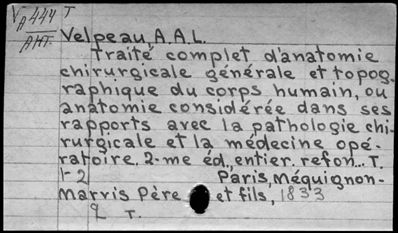 VA 444 T
AHT.
Velpeau, A.A.L.
Traité complet d'anatomie
chirurgicale générale et topog-
raphique du corps humain, ou
anatomie considérée dans ses
rapports avec la pathologie chi-
rurgicale et la médecine opé-
ratoire. 2-me éd., entier. refon.. T.
1-2 Paris, Méquignon-
Marvis Père et fils, 1833
2 T.